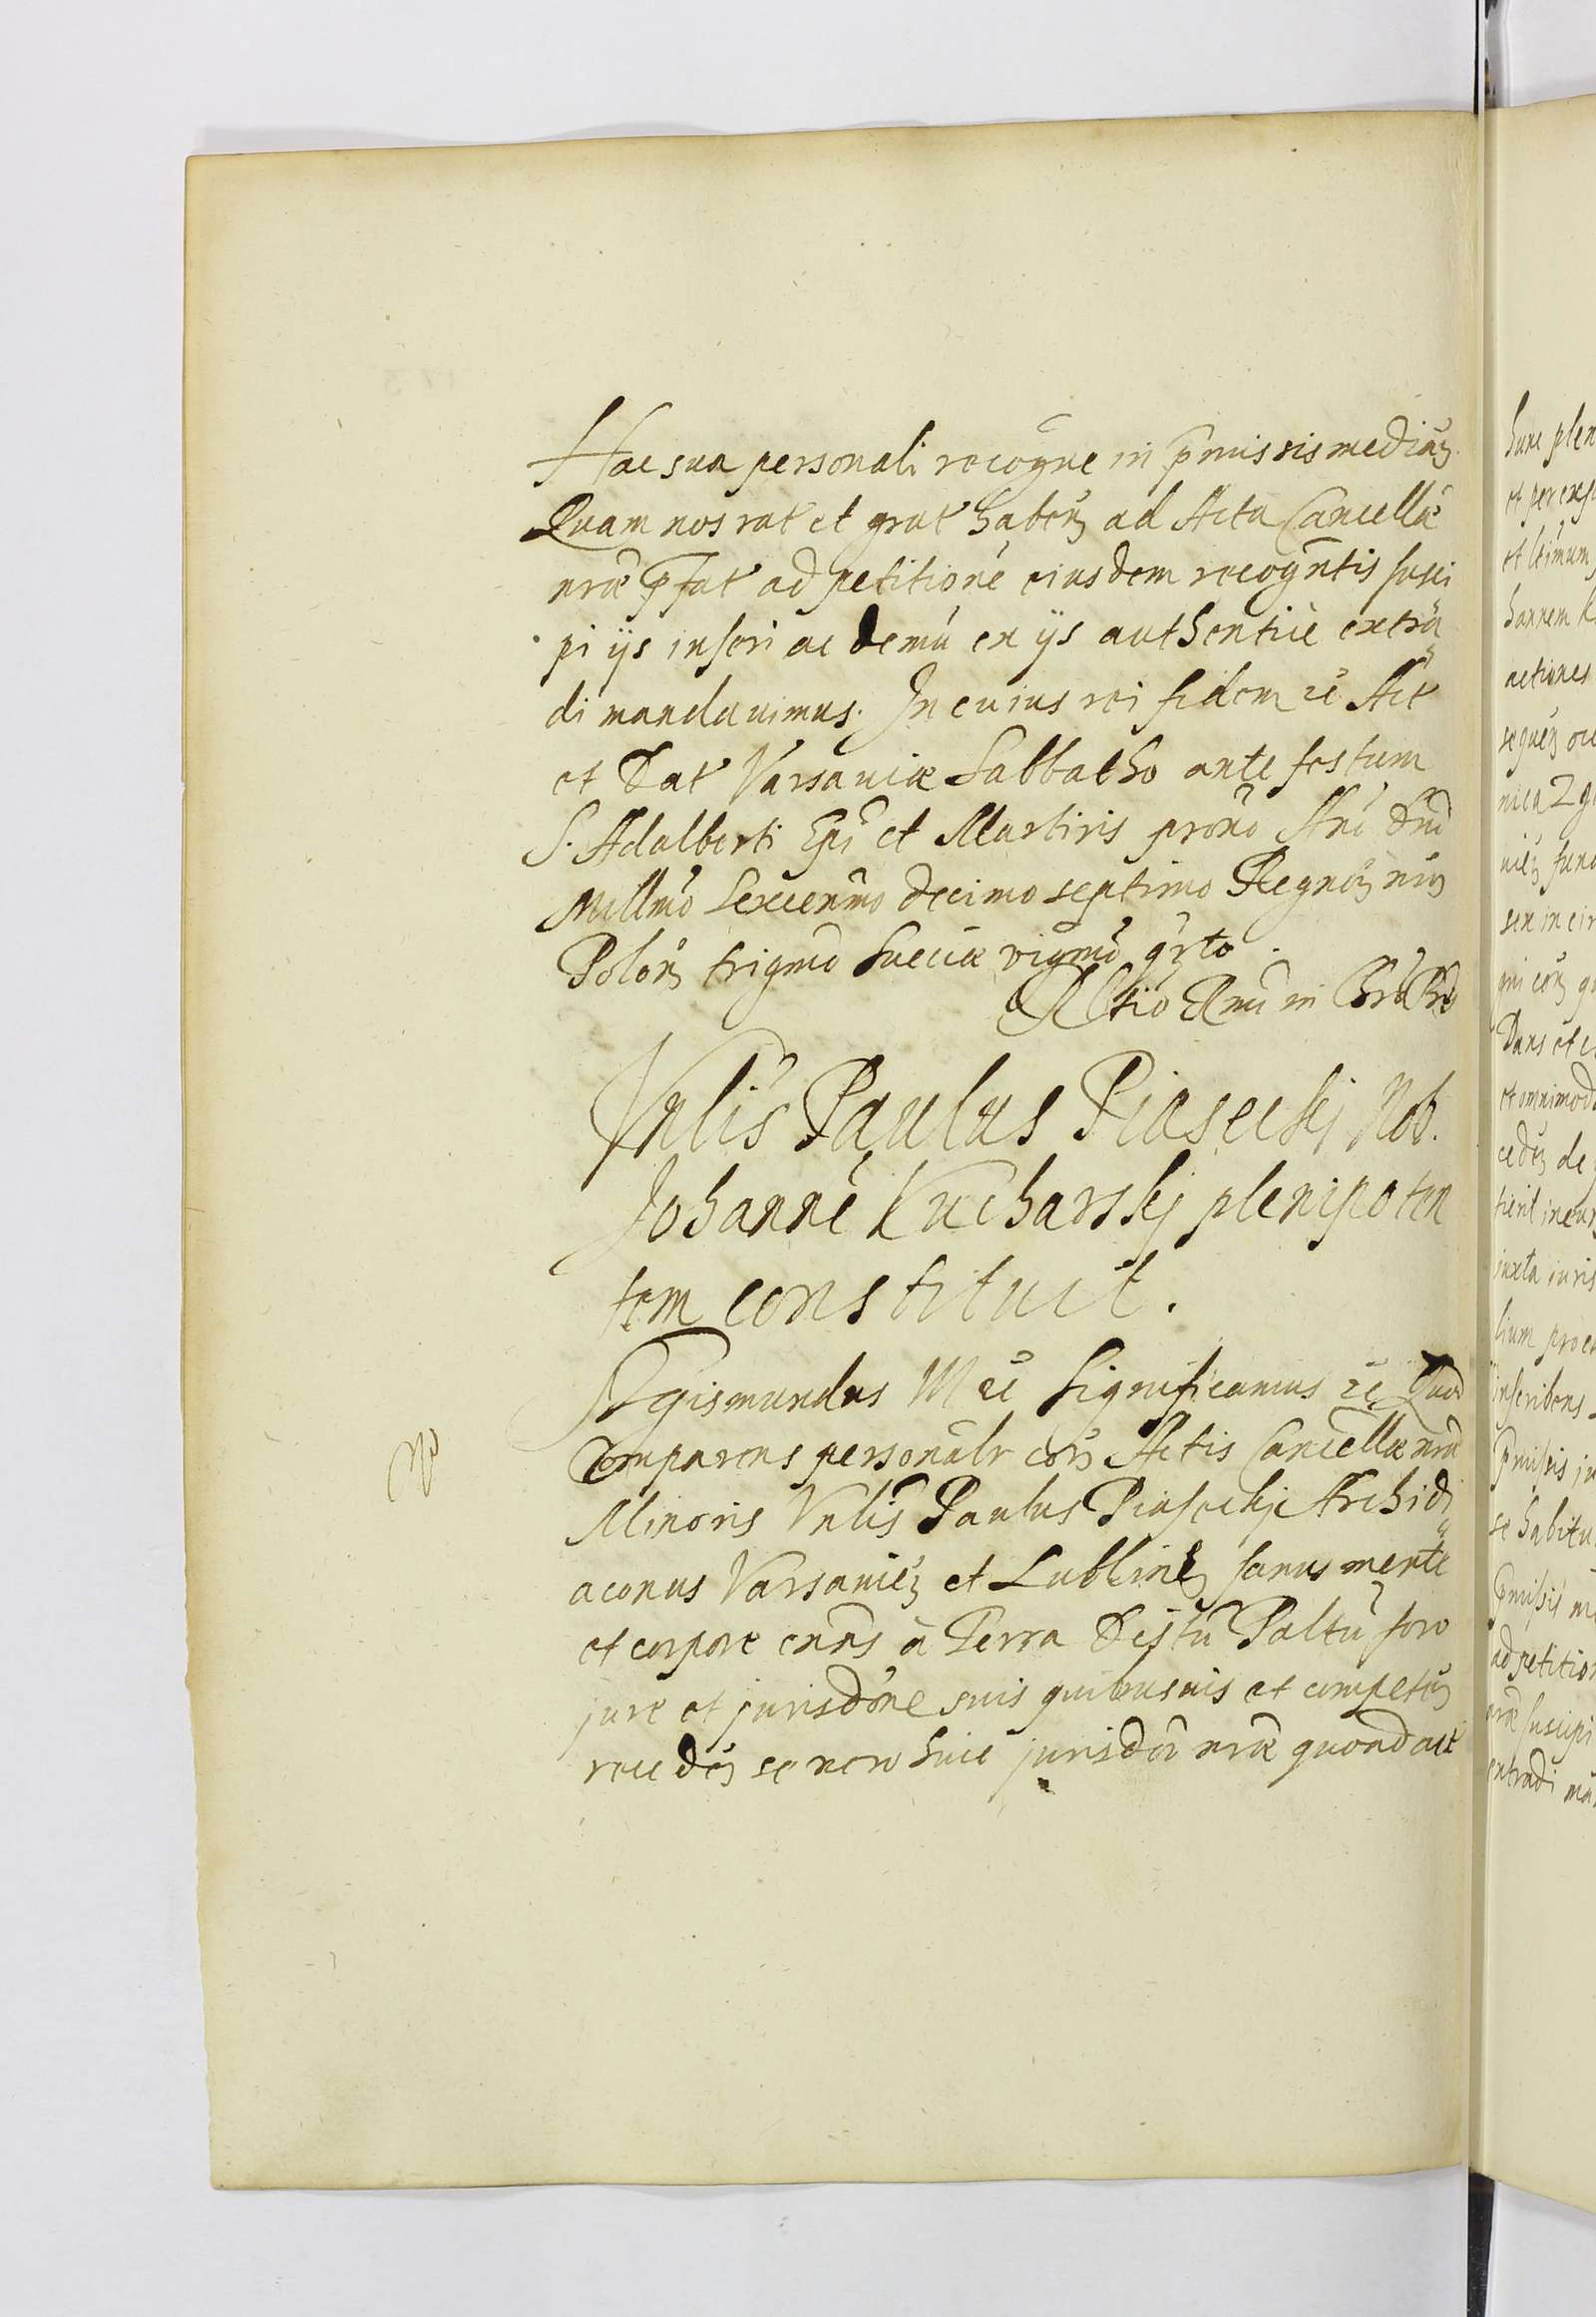 Hac sua personali recogne in pmissis mediañ
Quam nos rat et grat habeñ ad Acta Cancellæ
nræ pfat ad petitionē eiusdem recogntis susci
pi ijs inseri ac demū ex ijs authentice extra
di mandauimus. In cuius rei fidem ec Act
et Dat Varsauiæ Sabbatho ante festum
S. Adalberti Epi et Martiris prono Ano Dni
Millmo Sexcenmo decimo septimo Regnorz nrorz
Polon trigmo Sueciæ vigmo qrto.
Vnlis Paulus Piasecky Nob.
Johannē Kucharsky plenipoten
tem constituit.
Sigismundus III ec Significamus ec Quod
Comparens personalr corā Actis Cancellæ nræ
Minoris Vnlis Paulus Piasecky Archidi
aconus Varsauieñ et Lublineñ sanus mente
et corpore exñs à Terra Distu Paltū foro
jure et jurisdõne suis quibusuis et competeñ
recedeñ se vero huic jurisdoi nræ quoad act
hunc plen
et per expr
et ltimum
hannem K
actiones
sequeñ
nica
sex in
Dans et c
et omnimod
cedeñ de
juxta iuris
lium proc
inscribens
pmissis in
se habitu
pmissis m
ad petition
nræ suscipi
extradi man